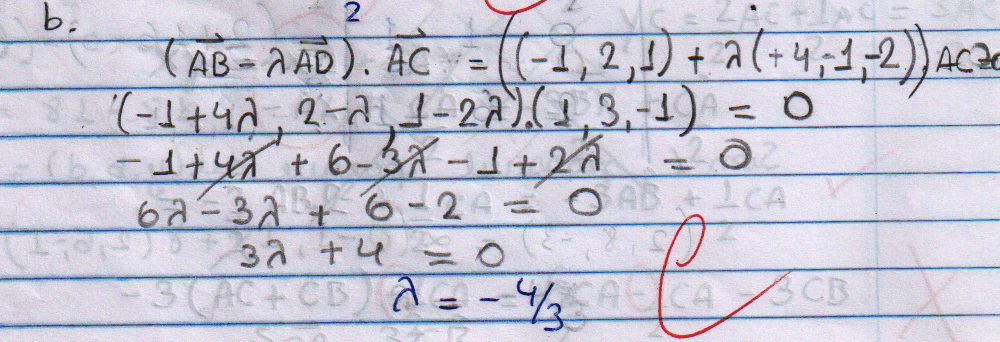 b.
2
(AB - λAD). AC = ((-1, 2, 1) + λ(+4,-1,-2)) AC=0
(-1+4λ, 2-λ, 1-2λ).(1, 3, -1) = 0
-1+4λ + 6-3λ - 1 + 2λ = 0
6λ - 3λ + 6 - 2 = 0
3λ + 4 = 0
λ = -4/3